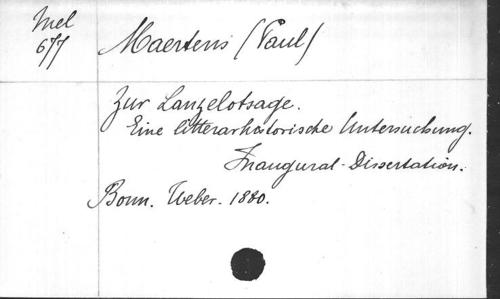 Mel
677
Maertens (Paul)
Zur Lanzelotsage.
Eine litterarhistorische Untersuchung.
Inaugural-Dissertation.
Bonn. Weber. 1880.